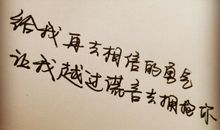 给我再去相信的勇气
让我越过谎言去拥抱你